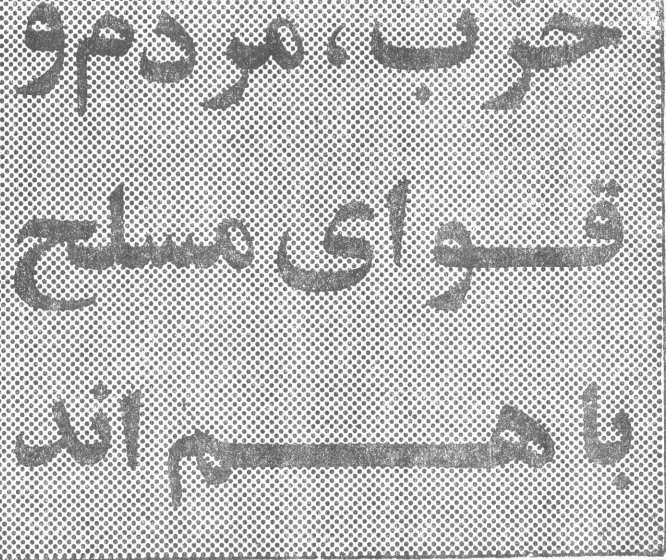 حزب، مردم و
قوای مسلح
با هم اند